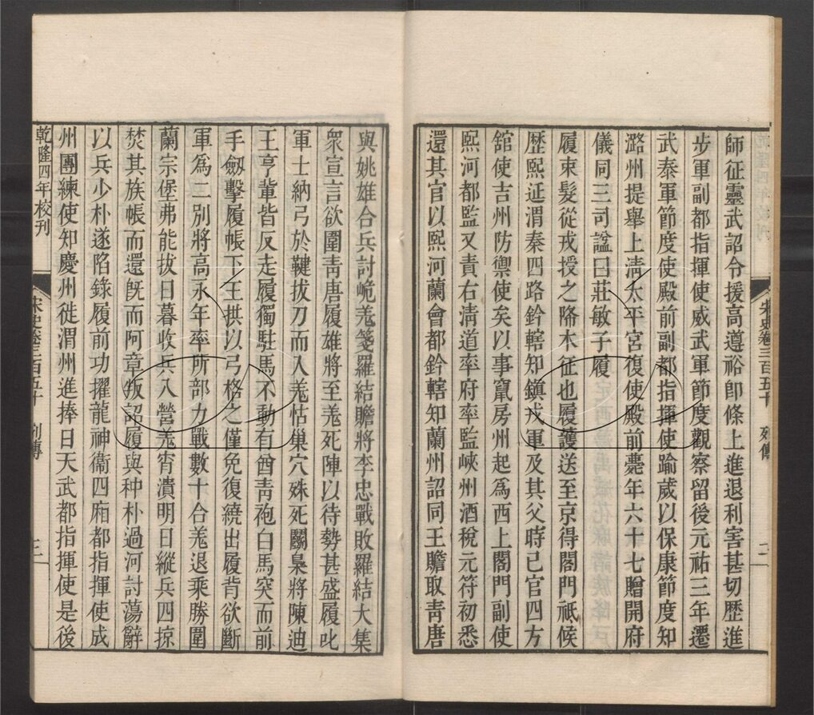 師征靈武詔令援高遵裕卽條上進退利害甚切歷進
步軍副都指揮使威武軍節度觀察留後元祐三年遷
武泰軍節度使殿前副都指揮使踰歲以保康節度知
潞州提舉上淸太平宮復使殿前薨年六十七贈開府
儀同三司謚曰莊敏子履
履束髮從戎授之降木征也履護送至京得閤門祗候
歷熙延渭秦四路鈐轄知鎭戎軍及其父時已官四方
舘使吉州防禦使矣以事竄房州起爲西上閤門副使
熙河都監又責右淸道率府率監峽州酒稅元符初悉
還其官以熙河蘭會都鈐轄知蘭州詔同王贍取靑唐
宋史卷三百五十 列傳 二
與姚雄合兵討峗羌篯羅結贍將李忠戰敗羅結大集
衆宣言欲圍靑唐履雄將至羌死陣以待勢甚盛履叱
軍士納弓於鞬拔刀而入羌怙巢穴殊死鬬梟將陳迪
王亨軰皆反走履獨駐馬不動有酋靑袍白馬突而前
手劒擊履帳下王拱以弓格之僅免復繞出履背欲斷
軍爲二別將高永年率所部力戰數十合羌退乘勝圍
蘭宗堡弗能拔日暮收兵入營羌宵潰明日縱兵四掠
焚其族帳而還旣而阿章叛詔履與种朴過河討蕩辭
以兵少朴遂陷錄履前功擢龍神衞四廂都指揮使成
州團練使知慶州徙渭州進捧日天武都指揮使是後
乾隆四年校刊 宋史卷三百五十 列傳 三